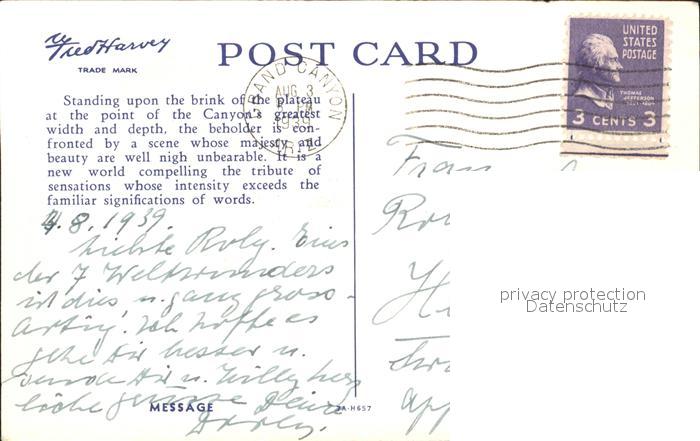 Fred Harvey
TRADE MARK
POST CARD
GRAND CANYON
AUG 3
PM
1939
ARIZ.
UNITED
STATES
POSTAGE
THOMAS
JEFFERSON
3 CENTS 3
Standing upon the brink of the plateau
at the point of the Canyon's greatest
width and depth, the beholder is con-
fronted by a scene whose majesty and
beauty are well nigh unbearable. It is a
new world compelling the tribute of
sensations whose intensity exceeds the
familiar significations of words.
4.8.1939.
Liebste Roly. Eines
der 7 Weltwunders
ist dies u. ganz gross-
artig! Ich hoffe es
gehe dir besser u.
sende dir u. Willy herz
liche grüsse Deine
MESSAGE
H657
privacy protection
Datenschutz